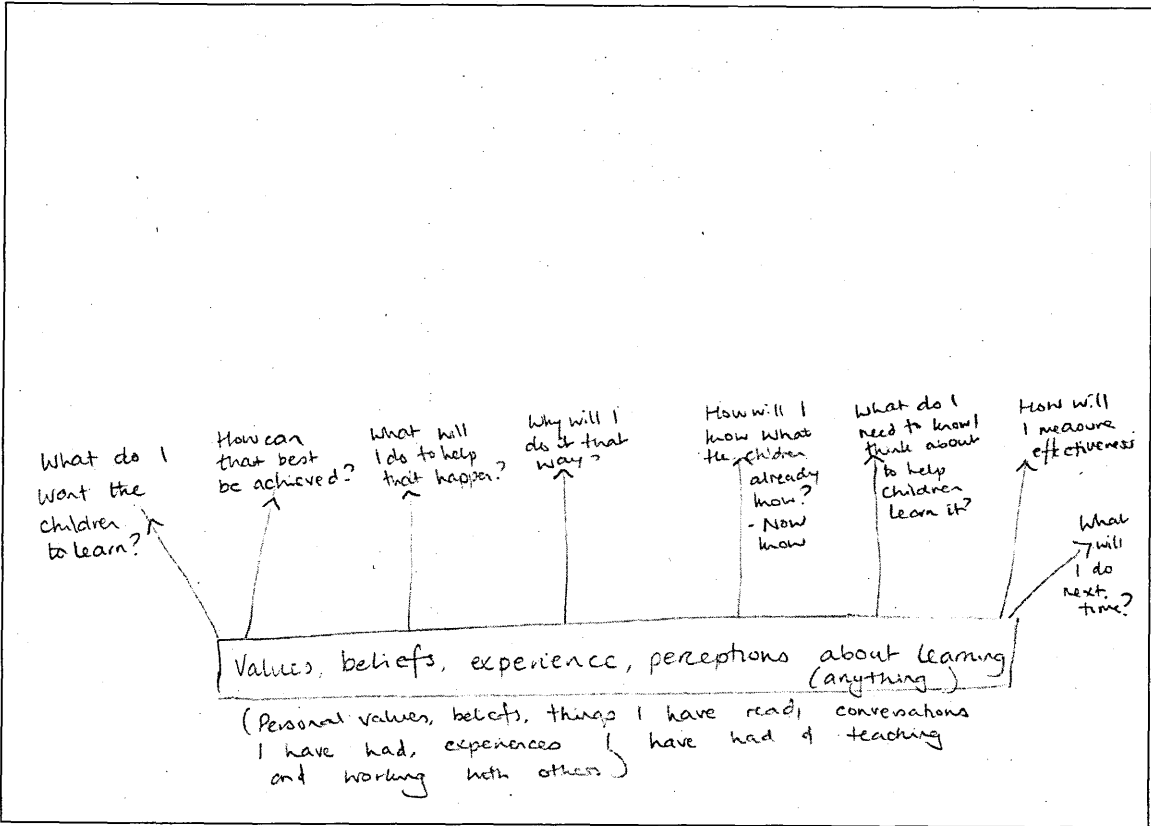 What do I
want the
children
to learn?
How can
that best
be achieved?
What will
I do to help
that happen?
Why will I
do it that
way?
How will I
know what
the children
already
know?
- Now
know
What do I
need to know/
think about
to help
children
learn it?
How will
I measure
effectiveness
What
will
I do
next
time?
Values, beliefs, experience, perceptions about learning
(anything)
(Personal values, beliefs, things I have read, conversations
I have had, experiences I have had of teaching
and working with others)